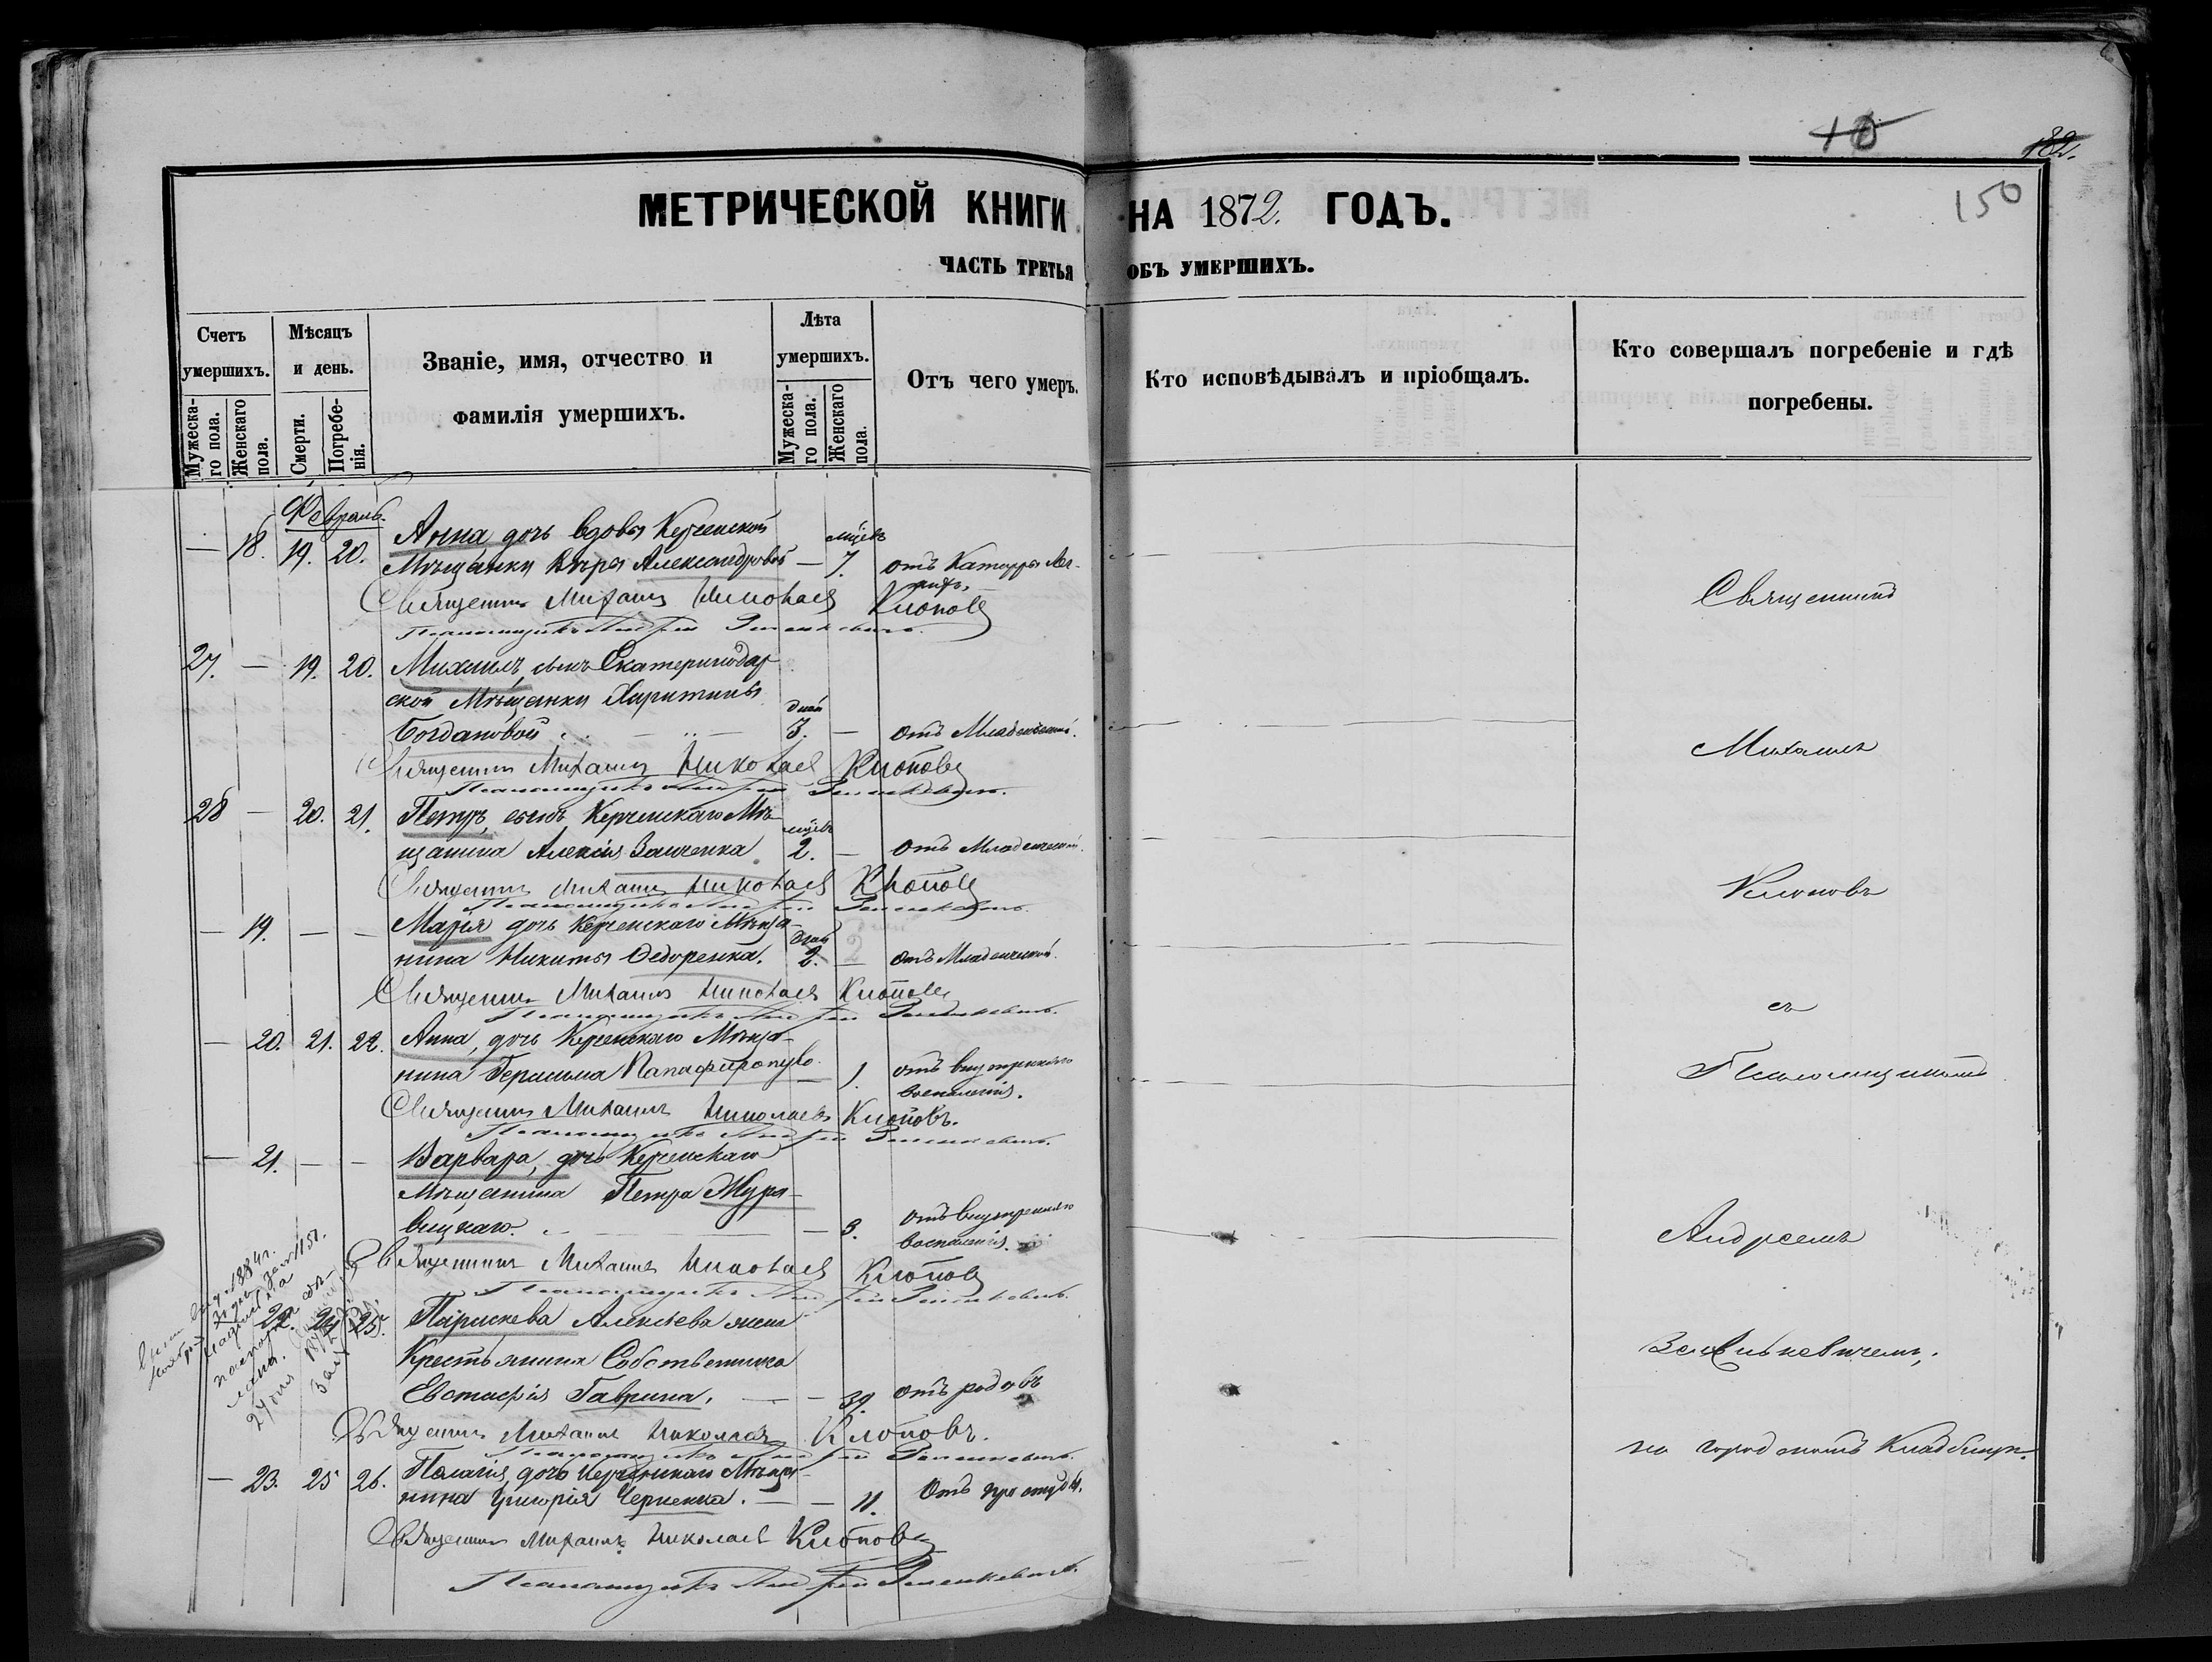 10
182.
150
МЕТРИЧЕСКОЙ КНИГИ НА 1872. ГОДЪ.
ЧАСТЬ ТРЕТЬЯ ОБЪ УМЕРШИХЪ.
Счетъ умершихъ.
Мужеска-го пола.
Женскаго пола.
Мѣсяцъ и день.
Смерти.
Погребе-нія.
Званіе, имя, отчество и
фамилія умершихъ.
Лѣта умершихъ.
Мужеска-го пола.
Женскаго пола.
Отъ чего умеръ.
Кто исповѣдывалъ и пріобщалъ.
Кто совершалъ погребеніе и гдѣ
погребены.
Февраль.
— 18. 19. 20. Анна дочь вдовы Керченской
Мѣщанки Вѣры Александровой — 7. отъ Катарра
Священникъ Михаилъ Николаевъ Клоповъ
Псаломщикъ Андрей
27. — 19. 20. Михаилъ, сынъ Екатеринодар
ской Мѣщанки Харитины
дней
Богдановой — 3. — отъ Младенческой.
Священникъ Михаилъ Николаевъ Клоповъ
Псаломщикъ Андрей
28 — 20. 21. Петръ, сынъ Керченскаго Мѣ-
щанина Алексія Заиченка 2. — отъ Младенческой.
Священникъ Михаилъ Николаевъ Клоповъ
Псаломщикъ Андрей
— 19. — — Марія дочь Керченскаго Мѣща-
дней
нина Никиты Федоренка. 2. — 2 отъ Младенческой.
Священникъ Михаилъ Николаевъ Клоповъ
Псаломщикъ Андрей
— 20. 21. 22. Анна, дочь Керченскаго Мѣща-
нина Герасима — 1. отъ внутренняго
воспаленія.
Священникъ Михаилъ Николаевъ Клоповъ.
Псаломщикъ Андрей
— 21. — — Варвара, дочь Керченскаго
Мѣщанина Петра Жура-
вицкаго. — 3. отъ внутренняго
воспаленія.
Священникъ Михаилъ Николаевъ Клоповъ
Псаломщикъ Андрей
22. 24 25. Параскева Алексѣева жена
Крестьянина Собственника
Евстафія Гаврина. — 39. отъ родовъ
Священникъ Михаилъ Николаевъ Клоповъ.
Псаломщикъ Андрей
— 23. 25 26. Пелагія, дочь Керченскаго Мѣща-
нина Григорія Черненка. — — 11. Отъ простуды.
Священникъ Михаилъ Николаевъ Клоповъ
Псаломщикъ Андрей
Священникъ
Михаилъ
Клоповъ
съ
Псаломщикомъ
Андреемъ
на городскомъ Кладбищѣ.